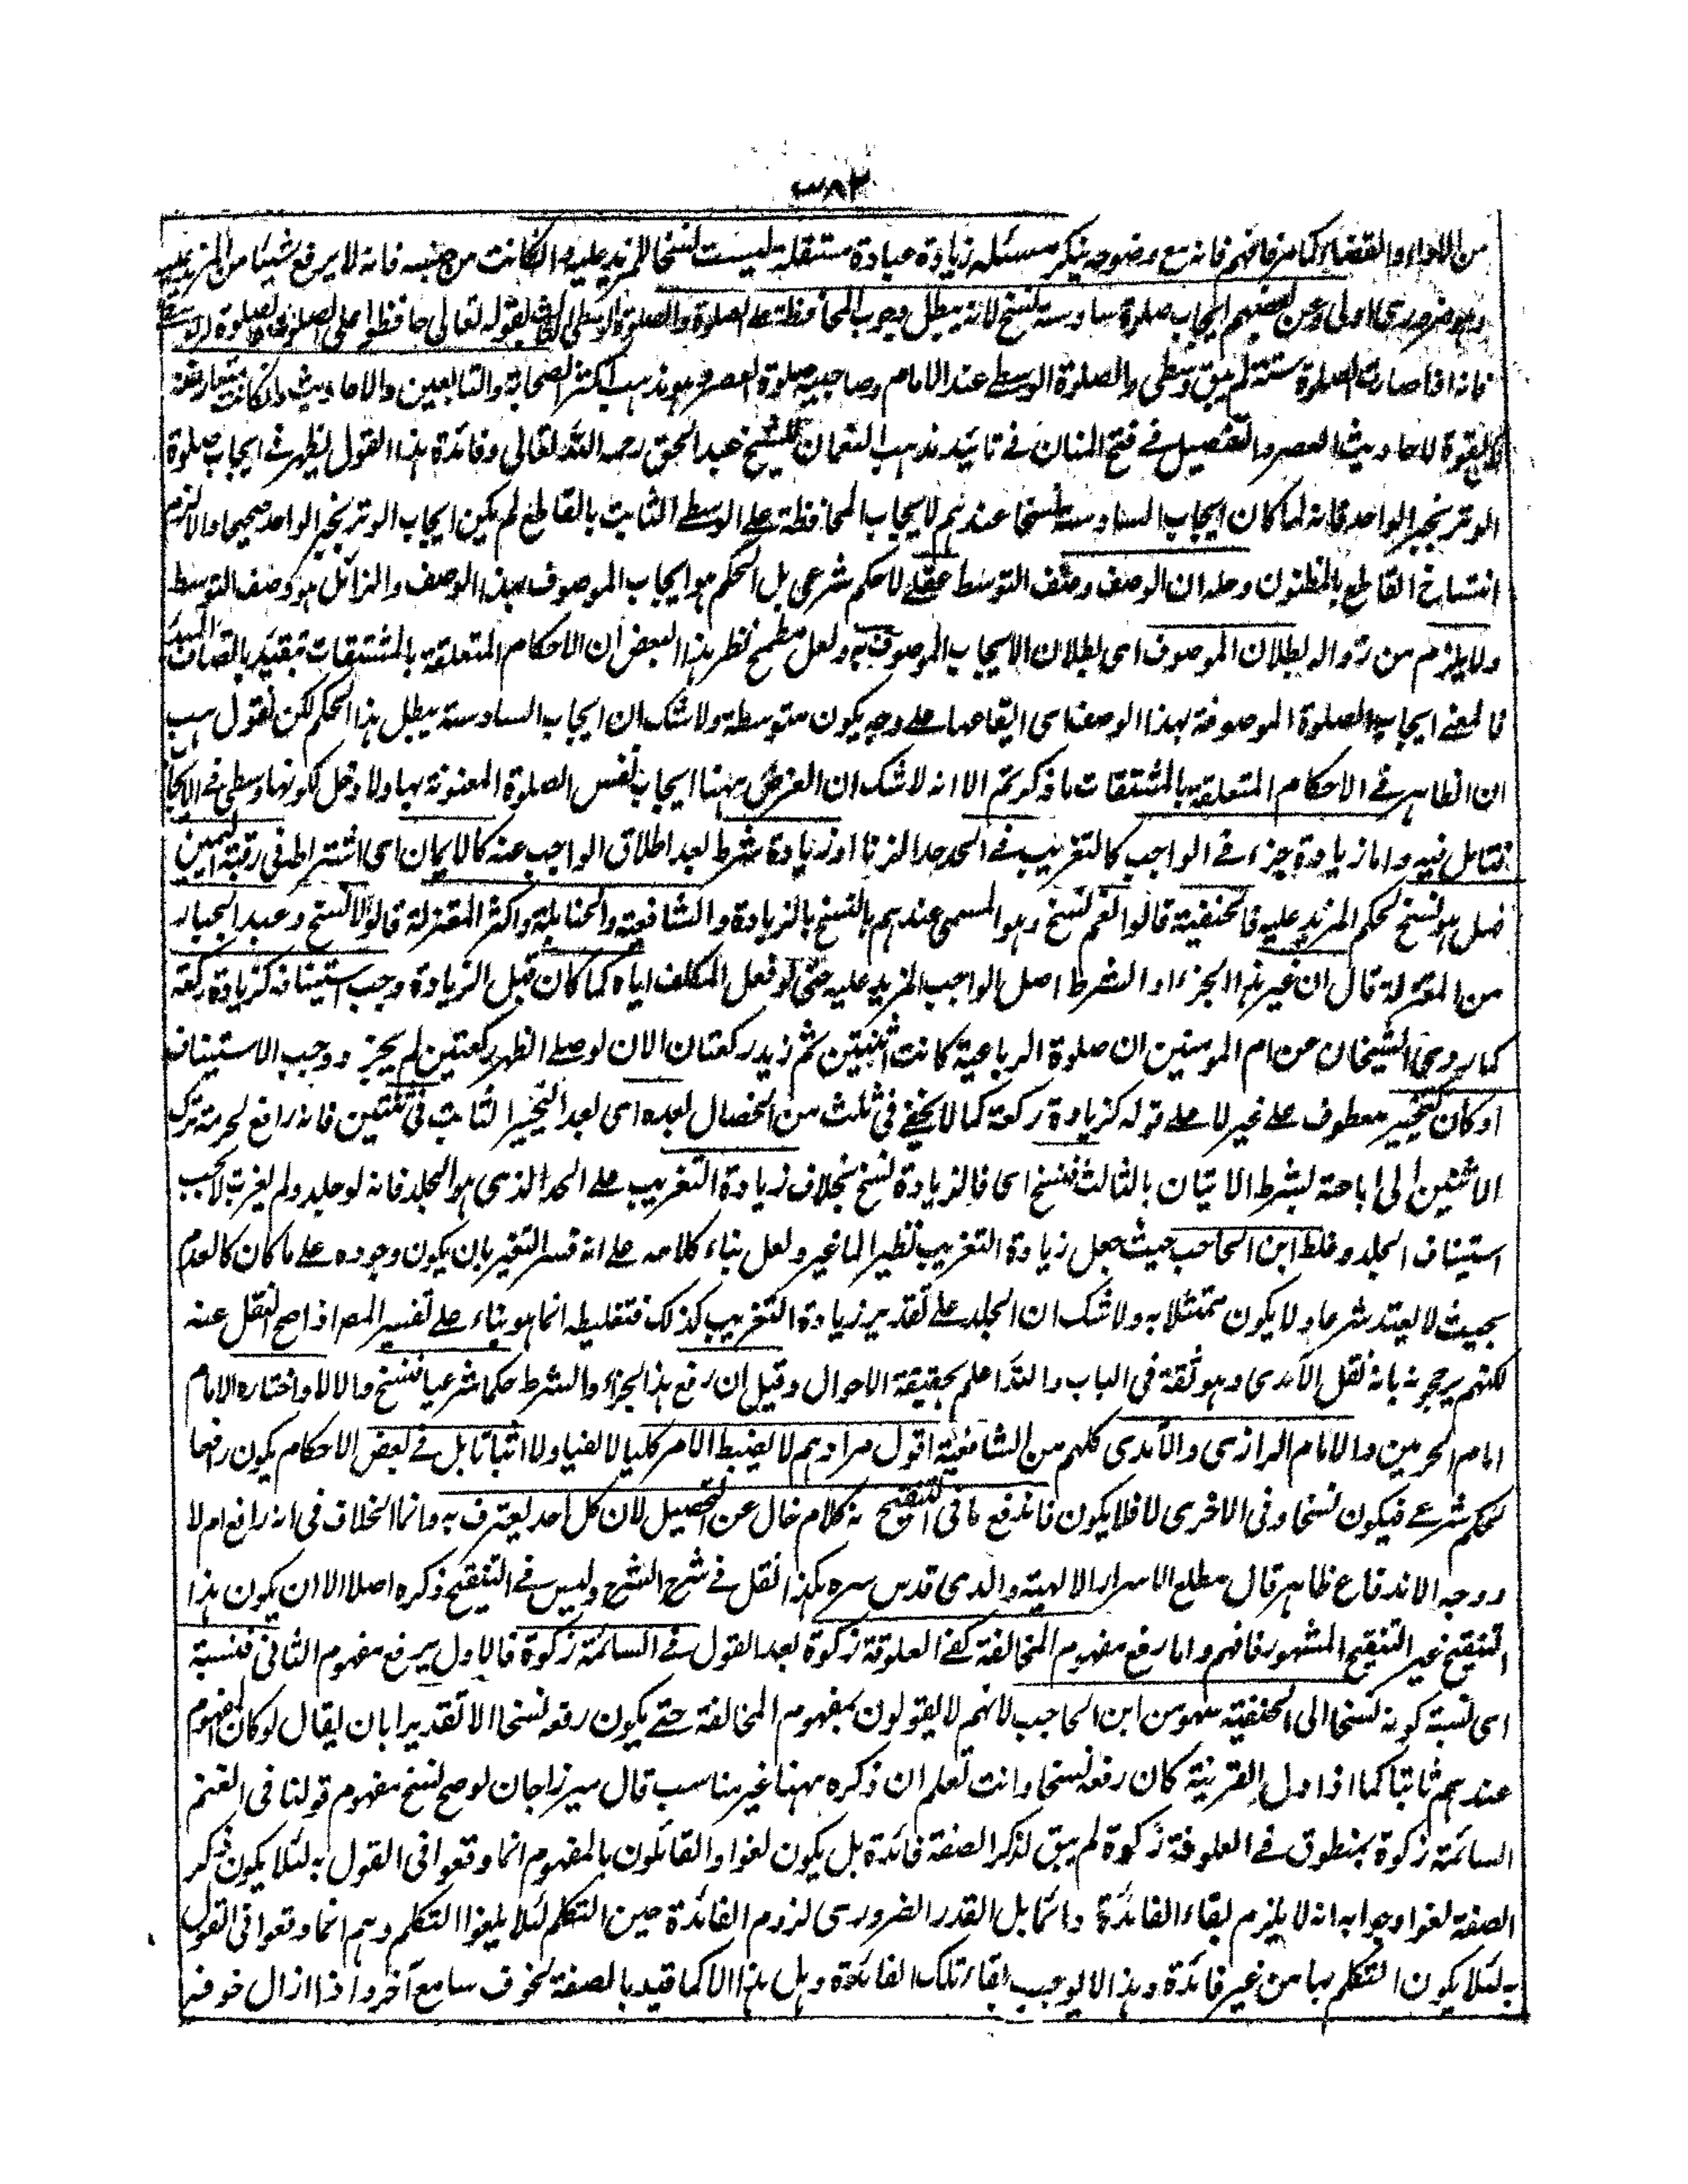 ٣٨٢
من الاداء والقضاء كما مر فافهم فانه مع وضوحه ينكر مسئلة زيادة عبادة مستقلة ليست نسخا للمزيد عليه وان كانت من جنسه فانه لا يرفع شيئا من المزيد عليه
وهو ضروري اولى وعن بعضهم ايجاب صلوة سادسة نسخ لانه يبطل وجوب المحافظة على الصلوة والصلوة الوسطى الثابت بقوله تعالى حافظوا على الصلوات والصلوة الوسطى
فانه اذا صارت الصلوة ستة لم يبق وسطى والصلوة الوسطى عند الامام وصاحبيه صلوة العصر وهو مذهب اكثر الصحابة والتابعين والاحاديث وان كانت متعارضة
لكن القوة لاحاديث العصر والتفصيل في فتح المنان في تائيد مذهب النعمان للشيخ عبد الحق رحمه الله تعالى وفائدة هذا القول يظهر في ايجاب صلوة
الوتر بخبر الواحد فانه لما كان ايجاب السادسة نسخا عندهم لايجاب المحافظة على الوسطى الثابت بالقاطع لم يكن ايجاب الوتر بخبر الواحد صحيحا والا لزم
انتساخ القاطع بالمظنون وحله ان الوصف وصف التوسط عقلي لا حكم شرعي بل الحكم هو ايجاب الموصوف بهذا الوصف والزائل هو وصف التوسط
ولا يلزم من زواله بطلان الموصوف اى بطلان الايجاب الموصوف به ولعل مطمح نظر هذا البعض ان الاحكام المتعلقة بالمشتقات تتقيد باتصاف المبدأ
فالمعنى ايجاب الصلوة الموصوفة بهذا الوصف اى ايقاعها على وجه يكون متوسطة ولا شك ان ايجاب السادسة يبطل هذا الحكم لكن نقول هب
ان الظاهر في الاحكام المتعلقة بالمشتقات ما ذكرتم الا انه لا شك ان الغرض ههنا ايجاب نفس الصلوة المعنونة بها ولا دخل لكونها وسطى في الايجاب
فتامل فيه واما زيادة جزء في الواجب كالتغريب في الحد حد الزنا او زيادة شرط بعد اطلاق الواجب عنه كالايمان اى اشتراطه في رقبة اليمين
فهل هو نسخ لحكم المزيد عليه فالحنفية قالوا نعم نسخ وهو المسمى عندهم بالنسخ بالزيادة والشافعية والحنابلة واكثر المعتزلة قالوا لا نسخ وعبد الجبار
من المعتزلة قال ان غير هذا الجزء او الشرط اصل الواجب المزيد عليه حتى لو فعل المكلف اياه كما كان قبل الزيادة وجب استينافه كزيادة ركعة
كما روى الشيخان عن ام المومنين ان صلوة الرباعية كانت اثنتين ثم زيد ركعتان الان لو صلى الظهر ركعتين لم يجز ووجب الاستيناف
او كان كتخيير معطوف على غير لا على قوله كزيادة ركعة كما لا يخفى في ثلث من الخصال بعده اى بعد التخيير الثابت في ثنتين فانه رافع لحرمة ترك
الاثنين الى اباحته بشرط الاتيان بالثالث فنسخ اى فالزيادة نسخ بخلاف زيادة التغريب على الحد الذى هو الجلد فانه لو جلد ولم يغرب لا يجب
استيناف الجلد وغلط ابن الحاجب حيث جعل زيادة التغريب نظيرا لما غير ولعل بناء كلامه على انه فسر التغير بان يكون وجوده على ما كان كالعدم
بحيث لا يعتد شرعا ولا يكون ممتثلا به ولا شك ان الجلد على تقدير زيادة التغريب كذلك فتغليطه انما هو بناء على تفسير المص اذا صح النقل عنه
لكنهم يرجحونه بانه نقل الآمدى وهو ثقة في الباب والله اعلم بحقيقة الاحوال وقيل ان رفع هذا الجزء والشرط حكما شرعيا فنسخ والا لا واختاره الامام
امام الحرمين والامام الرازى والآمدى كلهم من الشافعية اقول مرادهم لا يضبط الامر كليا لا نفيا ولا اثباتا بل في بعض الاحكام يكون رافعا
لحكم شرعي فيكون نسخا وفي الاخرى لا فلا يكون فاندفع ما في التنقيح انه كلام خال عن التحصيل لان كل احد يعترف به وانما الخلاف في انه رافع ام لا
ووجه الاندفاع ظاهر قال مطلع الاسرار الالهية والدى قدس سره هكذا نقل في شرح الشرح وليس في التنقيح ذكره اصلا الا ان يكون هذا
التنقيح غير التنقيح المشهور فافهم واما رفع مفهوم المخالفة كفى العلوفة زكوة بعد القول في السائمة زكوة فالاول يرفع مفهوم الثاني فنسبة
اى نسبة كونه نسخا الى الحنفية سهو من ابن الحاجب لانهم لا يقولون بمفهوم المخالفة حتى يكون رفعه نسخا الا تقديرا بان يقال لو كان المفهوم
عندهم ثابتا كما اذا دل القرينة كان رفعه نسخا وانت تعلم ان ذكره ههنا غير مناسب قال ميرزا جان لو صح نسخ مفهوم قولنا في الغنم
السائمة زكوة بمنطوق في العلوفة زكوة لم يبق لذكر الصفة فائدة بل يكون لغوا والقائلون بالمفهوم انما وقعوا في القول به لئلا يكون ذكر
الصفة لغوا وجوابه انه لا يلزم بقاء الفائدة دائما بل القدر الضرورى لزوم الفائدة حين التكلم لئلا يلغوا التكلم وهم انما وقعوا في القول
به لئلا يكون التكلم بها من غير فائدة وهذا لا يوجب بقاء تلك الفائدة وهل هذا الا كما قيد بالصفة لخوف سامع آخر واذا ازال خوفه